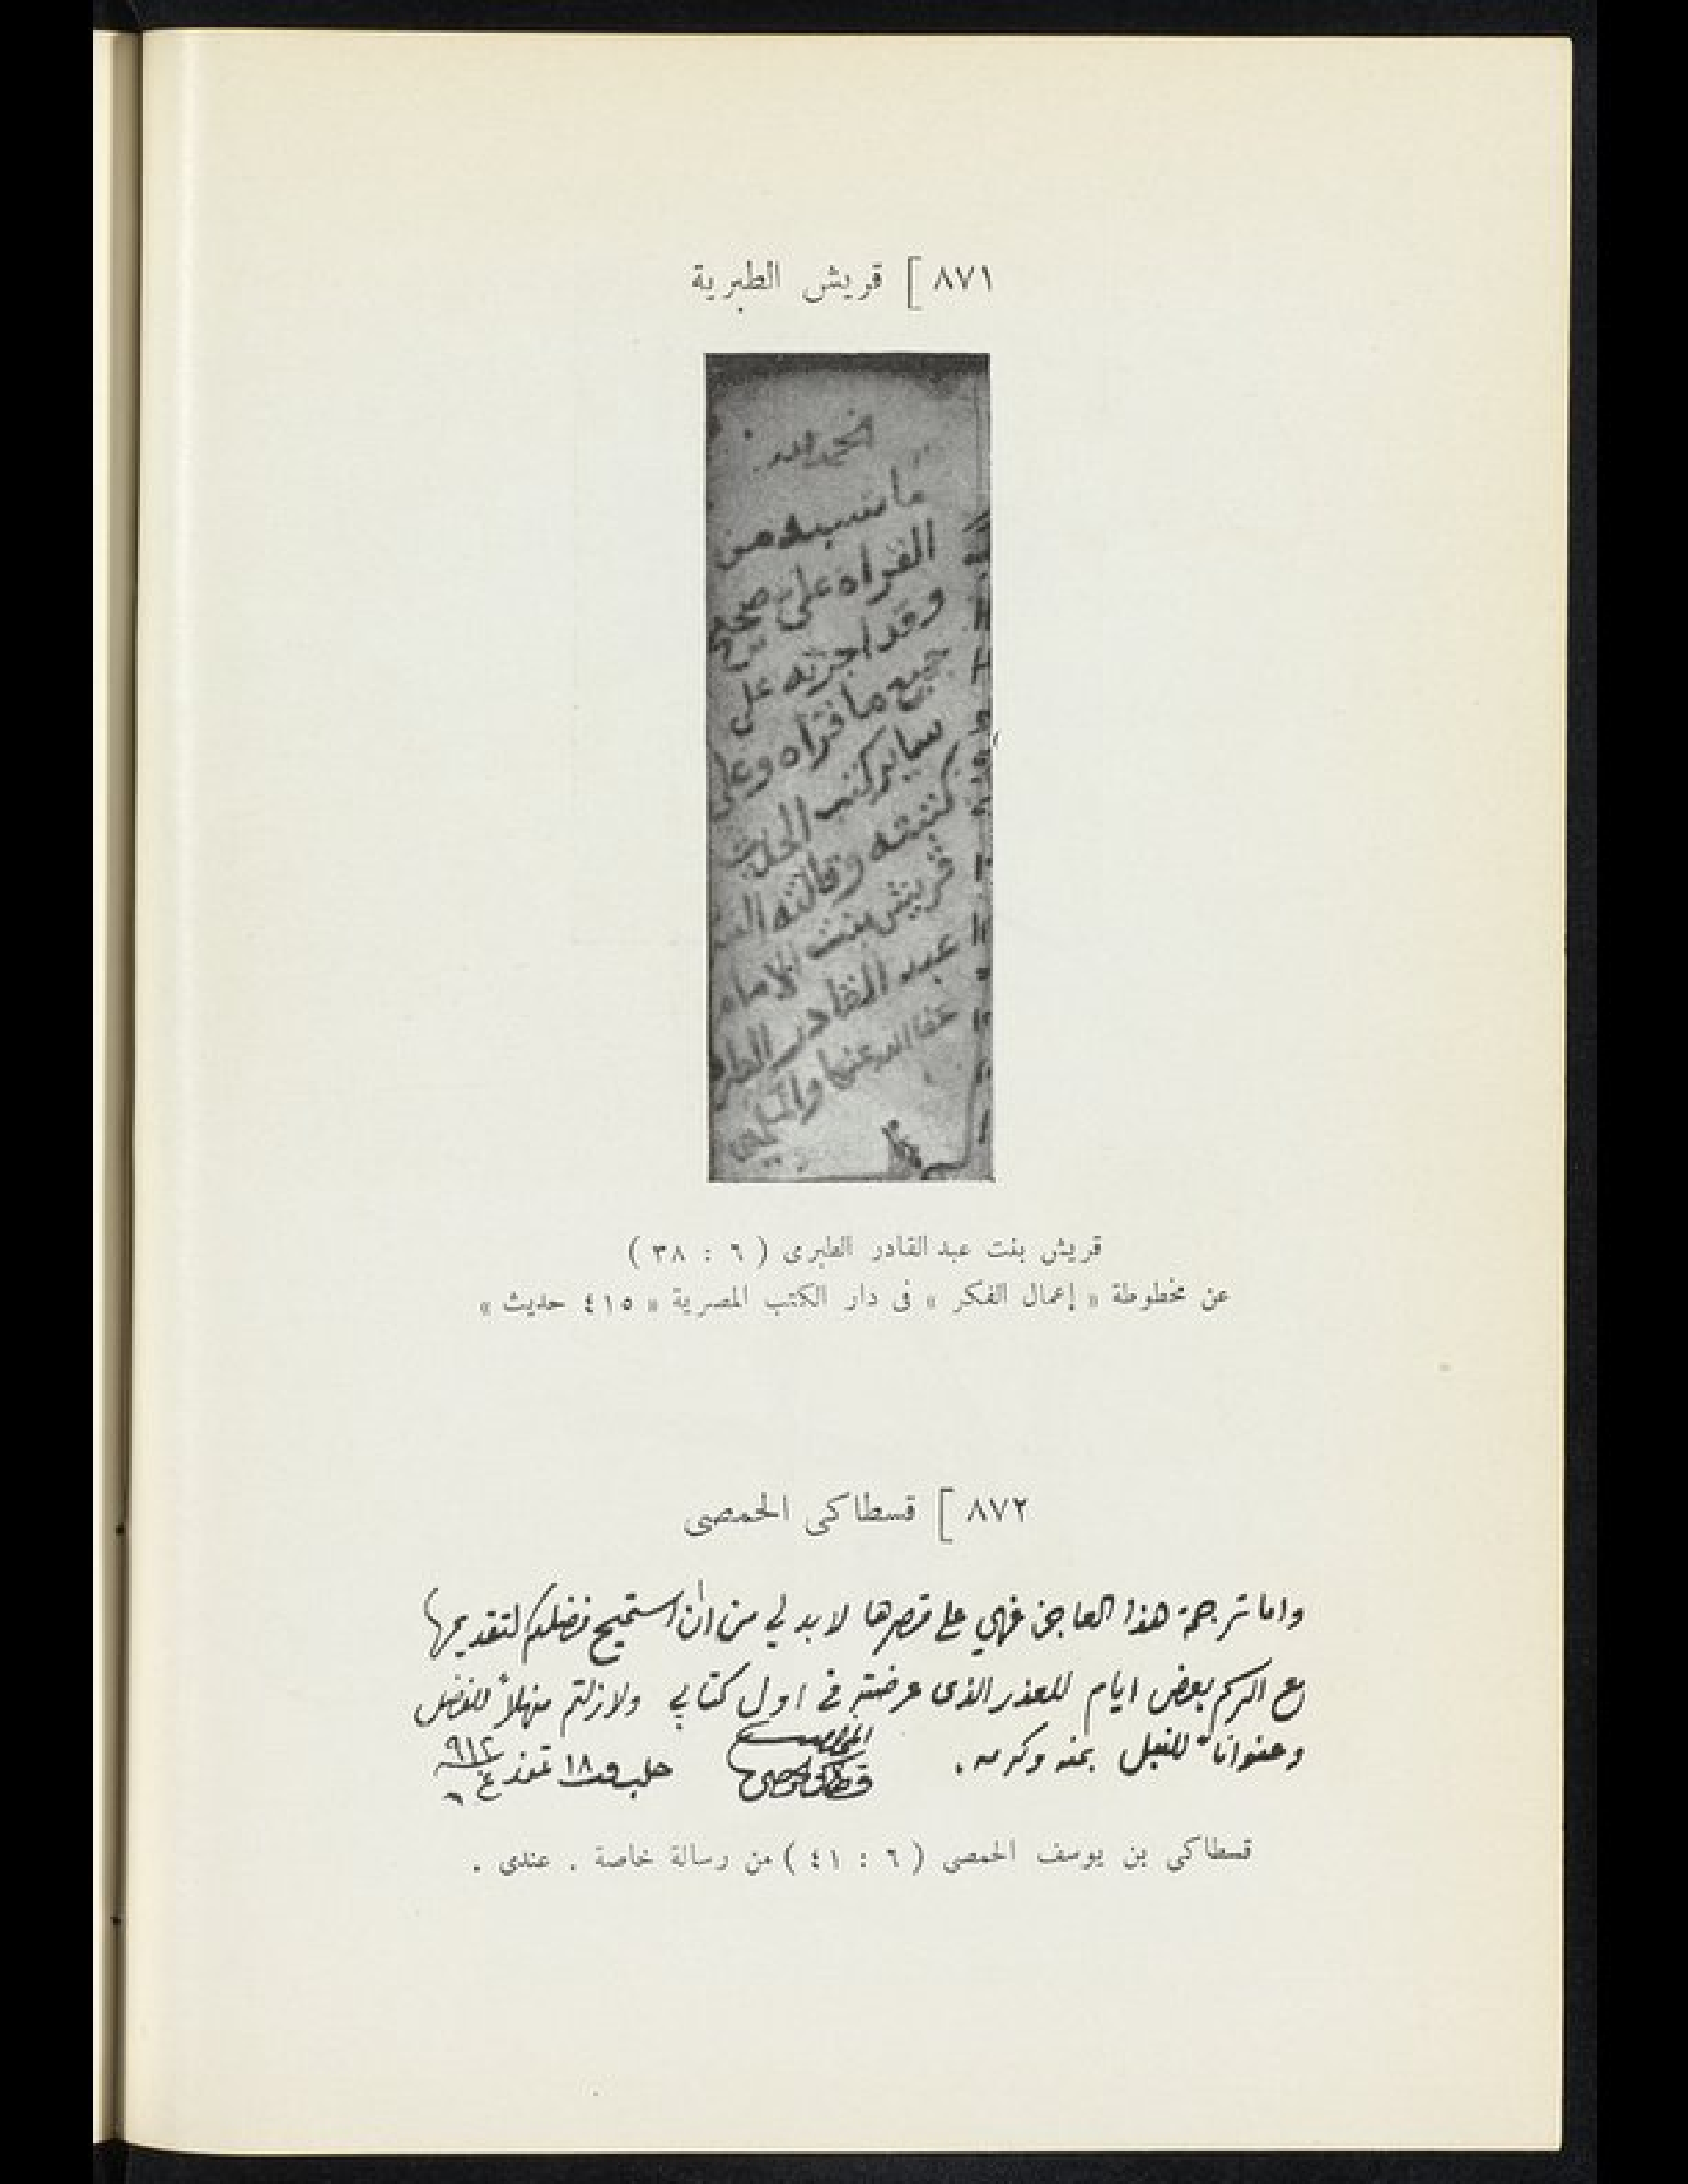 ٨٧١ [ قريش الطبرية
الحمد لله
ما نسبه من
القراه على صحيح
وقد اجزته على
جميع ما قراه وعلى
ساير كتب الحديث
كتبته وقالته
قريش بنت الامام
عبد القادر الطبر
عفا الله عنها والمسلمين
قريش بنت عبد القادر الطبرى ( ٦ : ٣٨ )
عن مخطوطة « إعمال الفكر » فى دار الكتب المصرية « ٤١٥ حديث »
٨٧٢ [ قسطاكى الحمصى
واما ترجمة هذا العاجز فهي على قصرها لا بد لي من ان استميح فضلكم لتقديمها
مع الرسم بعض ايام للعذر الذى عرضته في اول كتابي ولا زلتم منهلاً للفضل
وعنواناً للنبل بمنه وكرمه .
المخلص
قسطاكي الحمصي
حلب في ١٨ تموز ع ٩١٢
قسطاكى بن يوسف الحمصى ( ٦ : ٤١ ) من رسالة خاصة . عندى .